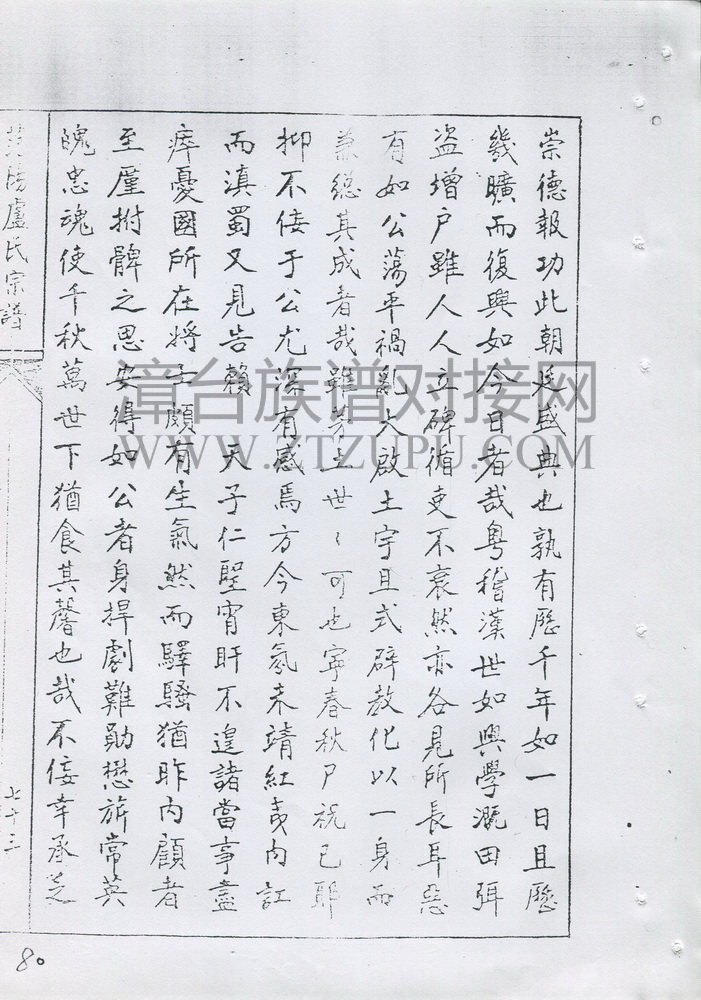 崇德報功此朝廷盛典也孰有歷千年如一日且歷
幾曠而復興如今日者哉粤稽漢世如興學溉田弭
盗增户雖人人立碑循吏不衰然亦各見所長耳惡
有如公蕩平禍亂大啟土宇且式辟教化以一身而
兼總其成者哉雖芳上世〻可也寧春秋尸祝已耶
抑不佞于公尤深有感焉方今東氛未靖紅夷内訌
而滇蜀又見告賴 天子仁聖宵旰不遑諸當事盡
瘁憂國所在將士頗有生氣然而驛騷猶昨内顧者
至厪拊髀之思安得如公者身捍劇難勛懋旂常英
魄忠魂使千秋萬世下猶食其馨也哉不佞幸承乏
盧氏宗譜
七十三
80
漳台族谱对接网
WWW.ZTZUPU.COM